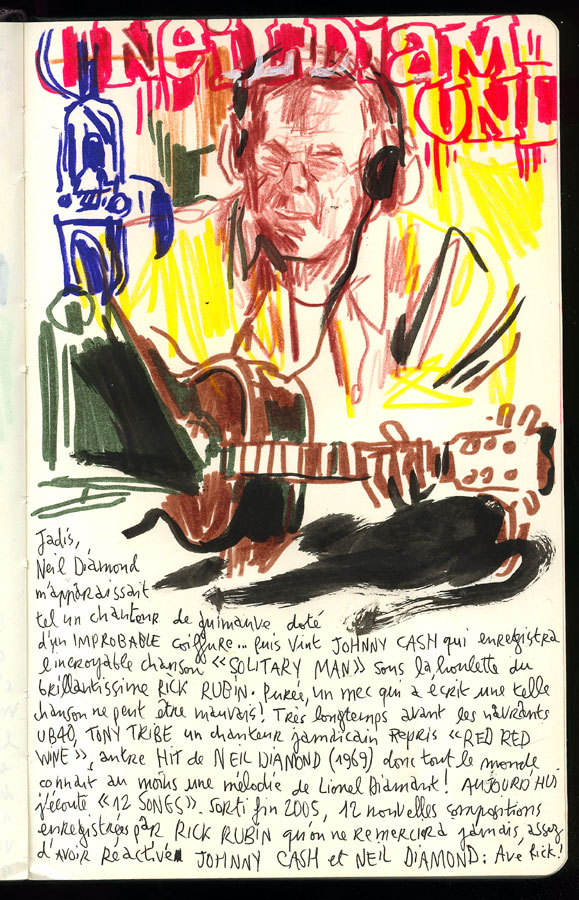 NEIL DIAM-
OND
Jadis,
Neil Diamond
m'apparaissait
tel un chanteur de guimauve doté
d'un IMPROBABLE coiffure... Puis vint JOHNNY CASH qui enregistra
l'incroyable chanson «SOLITARY MAN» sous la houlette du
brillantissime RICK RUBIN. Purée, un mec qui a écrit une telle
chanson ne peut être mauvais! Très longtemps avant les navrants
UB40, TONY TRIBE un chanteur jamaïcain Repris «RED RED
WINE», autre HIT de NEIL DIAMOND (1969) donc tout le monde
connait au moins une mélodie de Lionel Diamant! AUJOURD'HUI
j'écoute «12 SONGS». Sorti fin 2005, 12 nouvelles compositions
enregistrées pAR RICK RUBIN qu'on ne remerciera jamais assez
d'AVOIR Réactivé JOHNNY CASH et NEIL DIAMOND: Avé Rick!